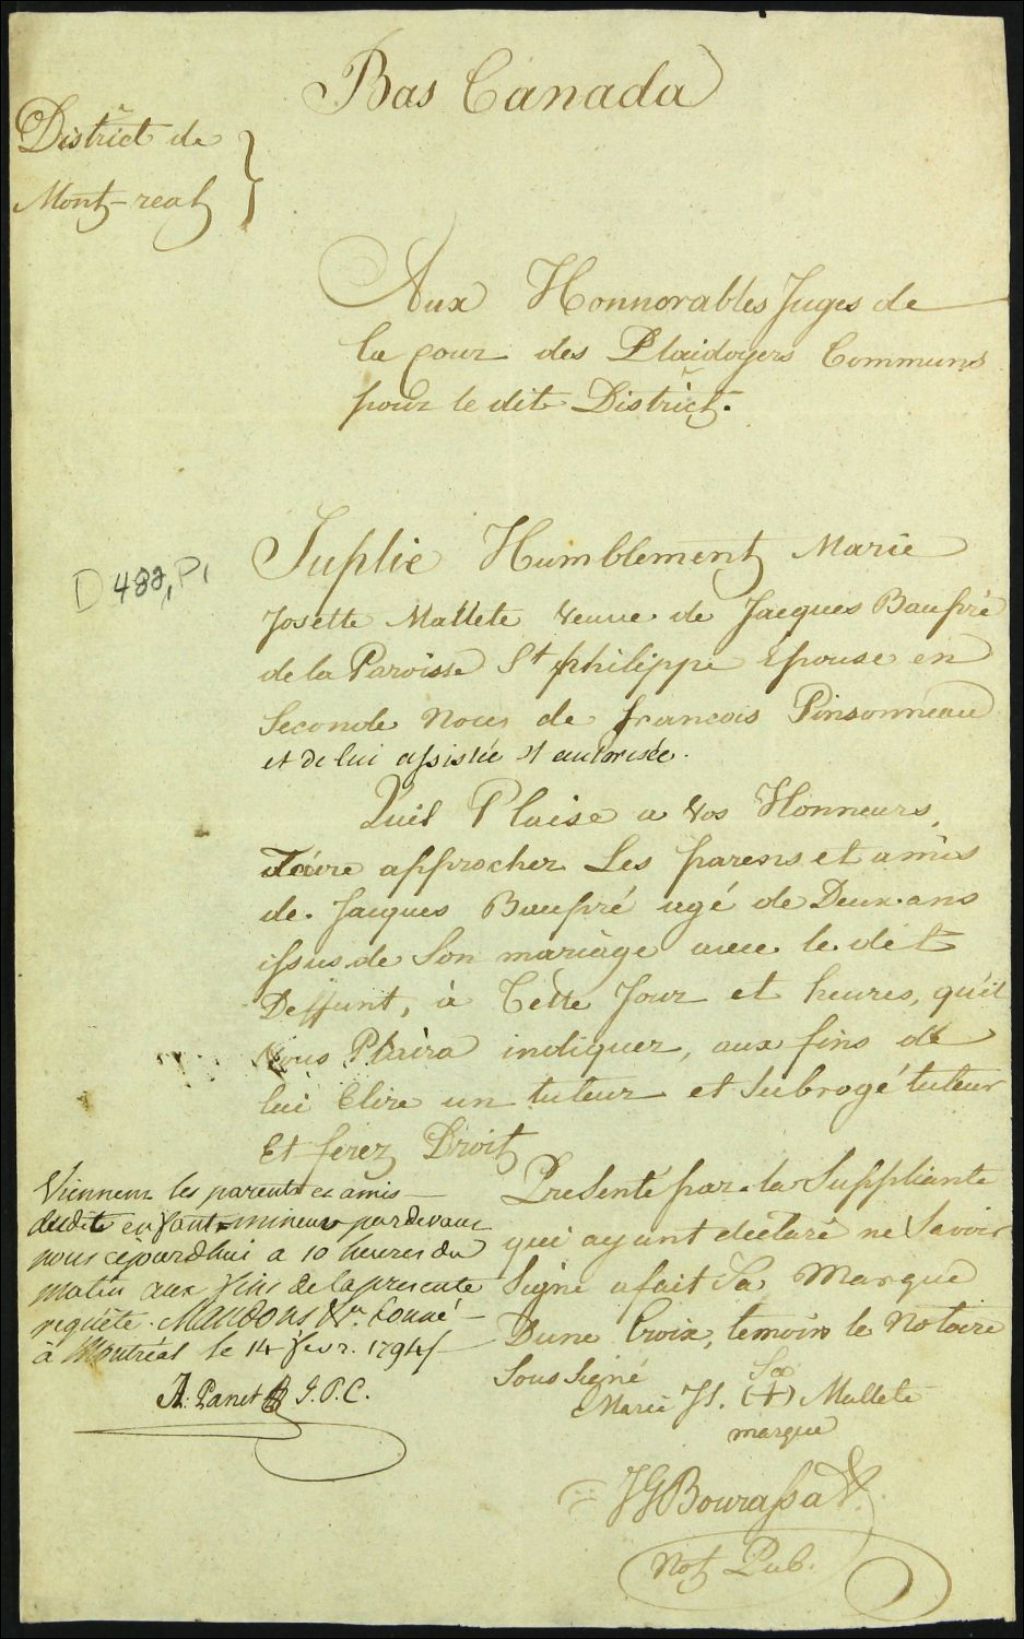 Bas Canada
District de
Montreal
Aux Honnorables Juges de
la Cour des Plaidoyers Communs
pour le dit District.
D 488, P1
Suplie Humblement Marie
Josette Mallete Veuve de Jacques Baupré
de la Paroisse St philippe Epouse en
Seconde Noces de francois Pinsonneau
et de lui assistée et autorisée.
Quil Plaise a Vos Honneurs,
faire approcher Les parens et amis
de Jacques Baupré agé de Deux ans
issus de Son mariage avec le dit
Deffunt, à Cette Jour et heures, qu'il
Vous Plaira indiquer, aux fins de
lui Elire un tuteur et Subrogé tuteur
Et ferez Droit
Viennent les parents et amis
dudit enfant mineur pardevant
nous cejourdhui a 10 heures du
matin aux fins de la presente
requête. Mandons &c. Donné
à Montréal le 14 fevr. 1794
A: Panet J. P. C.
Presenté par la Suppliante
qui ayant declaré ne Savoir
Signé a fait Sa Marque
Dune Croix, temoin le Notaire
Sous Signé
Sa
Marie Js. (+) Mallete
marque
JG Bourassa
Not Pub.